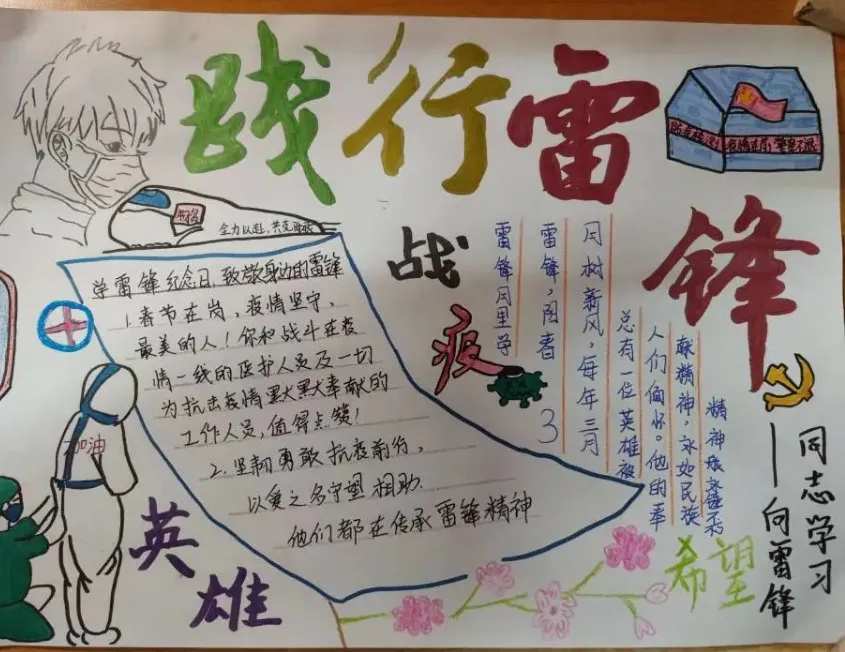 践行雷
锋
战
疫
全力以赴,共克
学雷锋纪念日,致敬身边的雷锋
1.春节在岗,疫情坚守,
最美的人!你和战斗在疫
情一线的医护人员及一切
为抗击疫情默默奉献的
工作人员,值得点赞!
2.坚韧勇敢抗疫前行,
以爱之名守望相助.
他们都在传承雷锋精神
雷锋月里学
雷锋,阳春 3
月树新风,每年三月
总有一位英雄被
人们缅怀。他的奉
献精神,永如民族
精神
加油
英
雄
希望
同志学习
——向雷锋